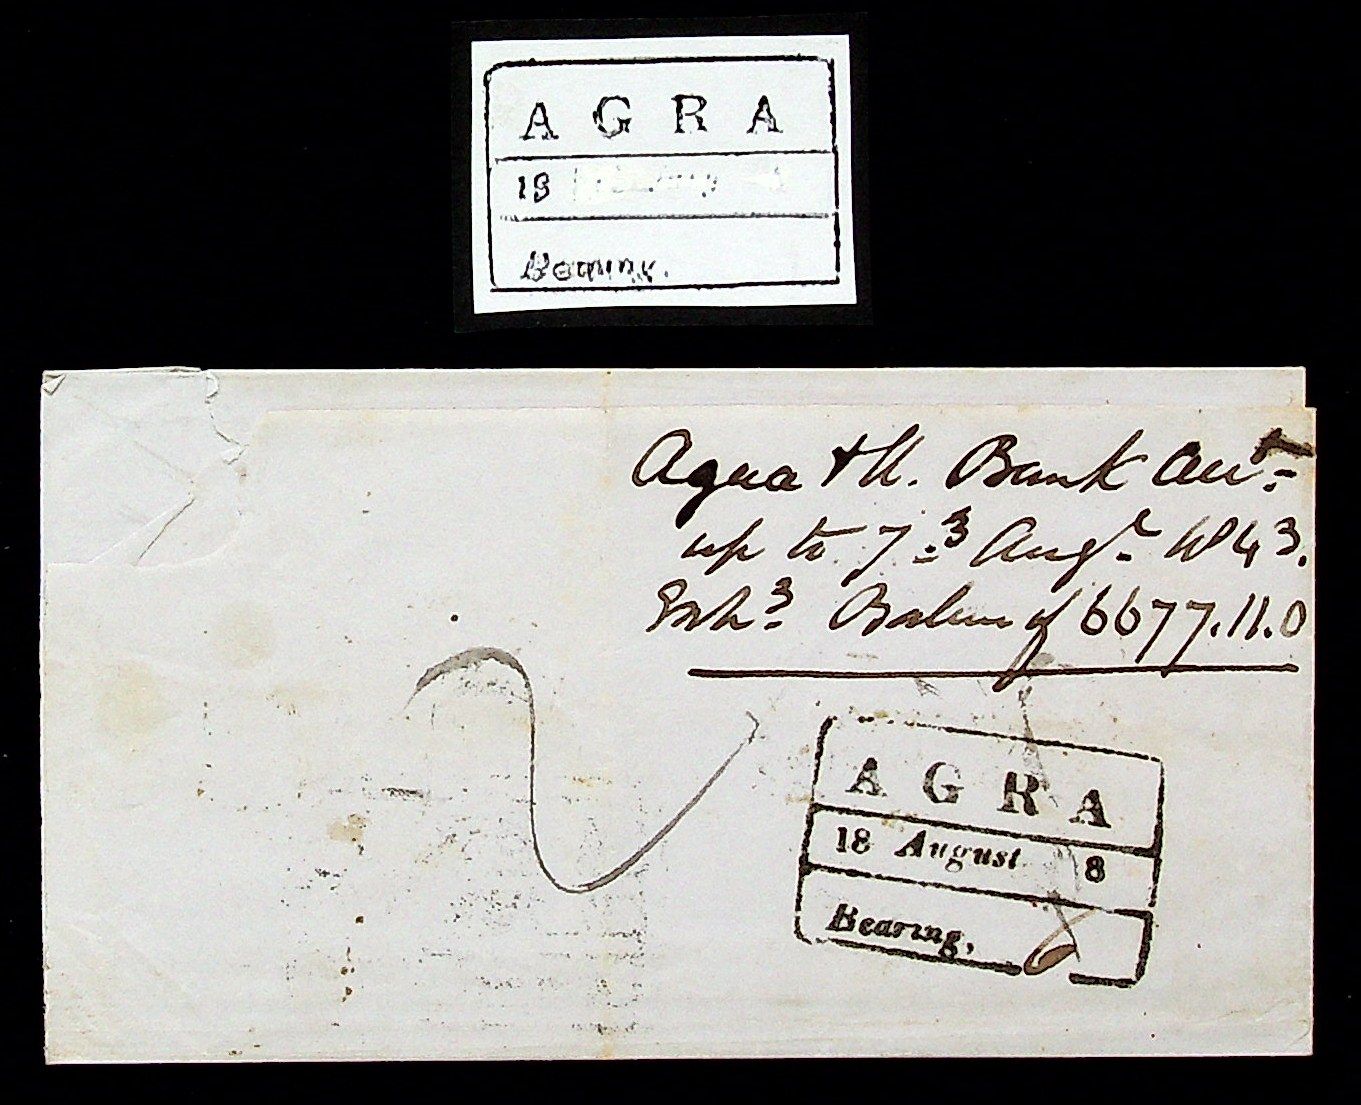 A G R A
18
Bearing.
Agra & U. Bank Acct.
up to 7.3 Augt. 1843.
Balance of 6677.11.0
A G R A
18 August 8
Bearing,